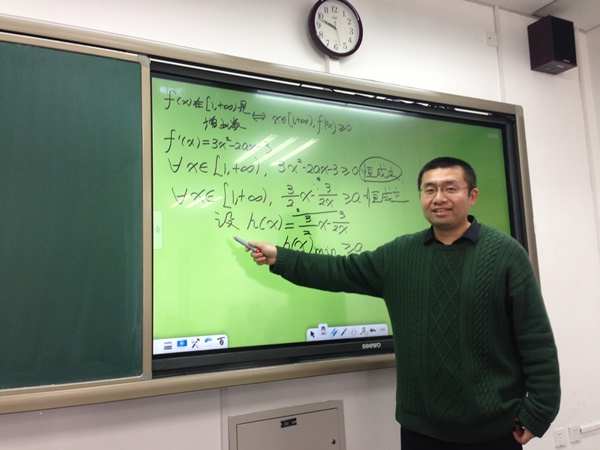 f(x)在[1,+∞)是
增函数 ⇔ x∈[1,+∞), f'(x)≥0
f'(x)=3x²-2ax-3
∀x∈[1,+∞), 3x²-2ax-3≥0 恒成立
∀x∈[1,+∞), 3/2 x - 3/2x ≥a 恒成立
设 h(x)= 3/2 x - 3/2x
h(x)min≥a
SEEWO